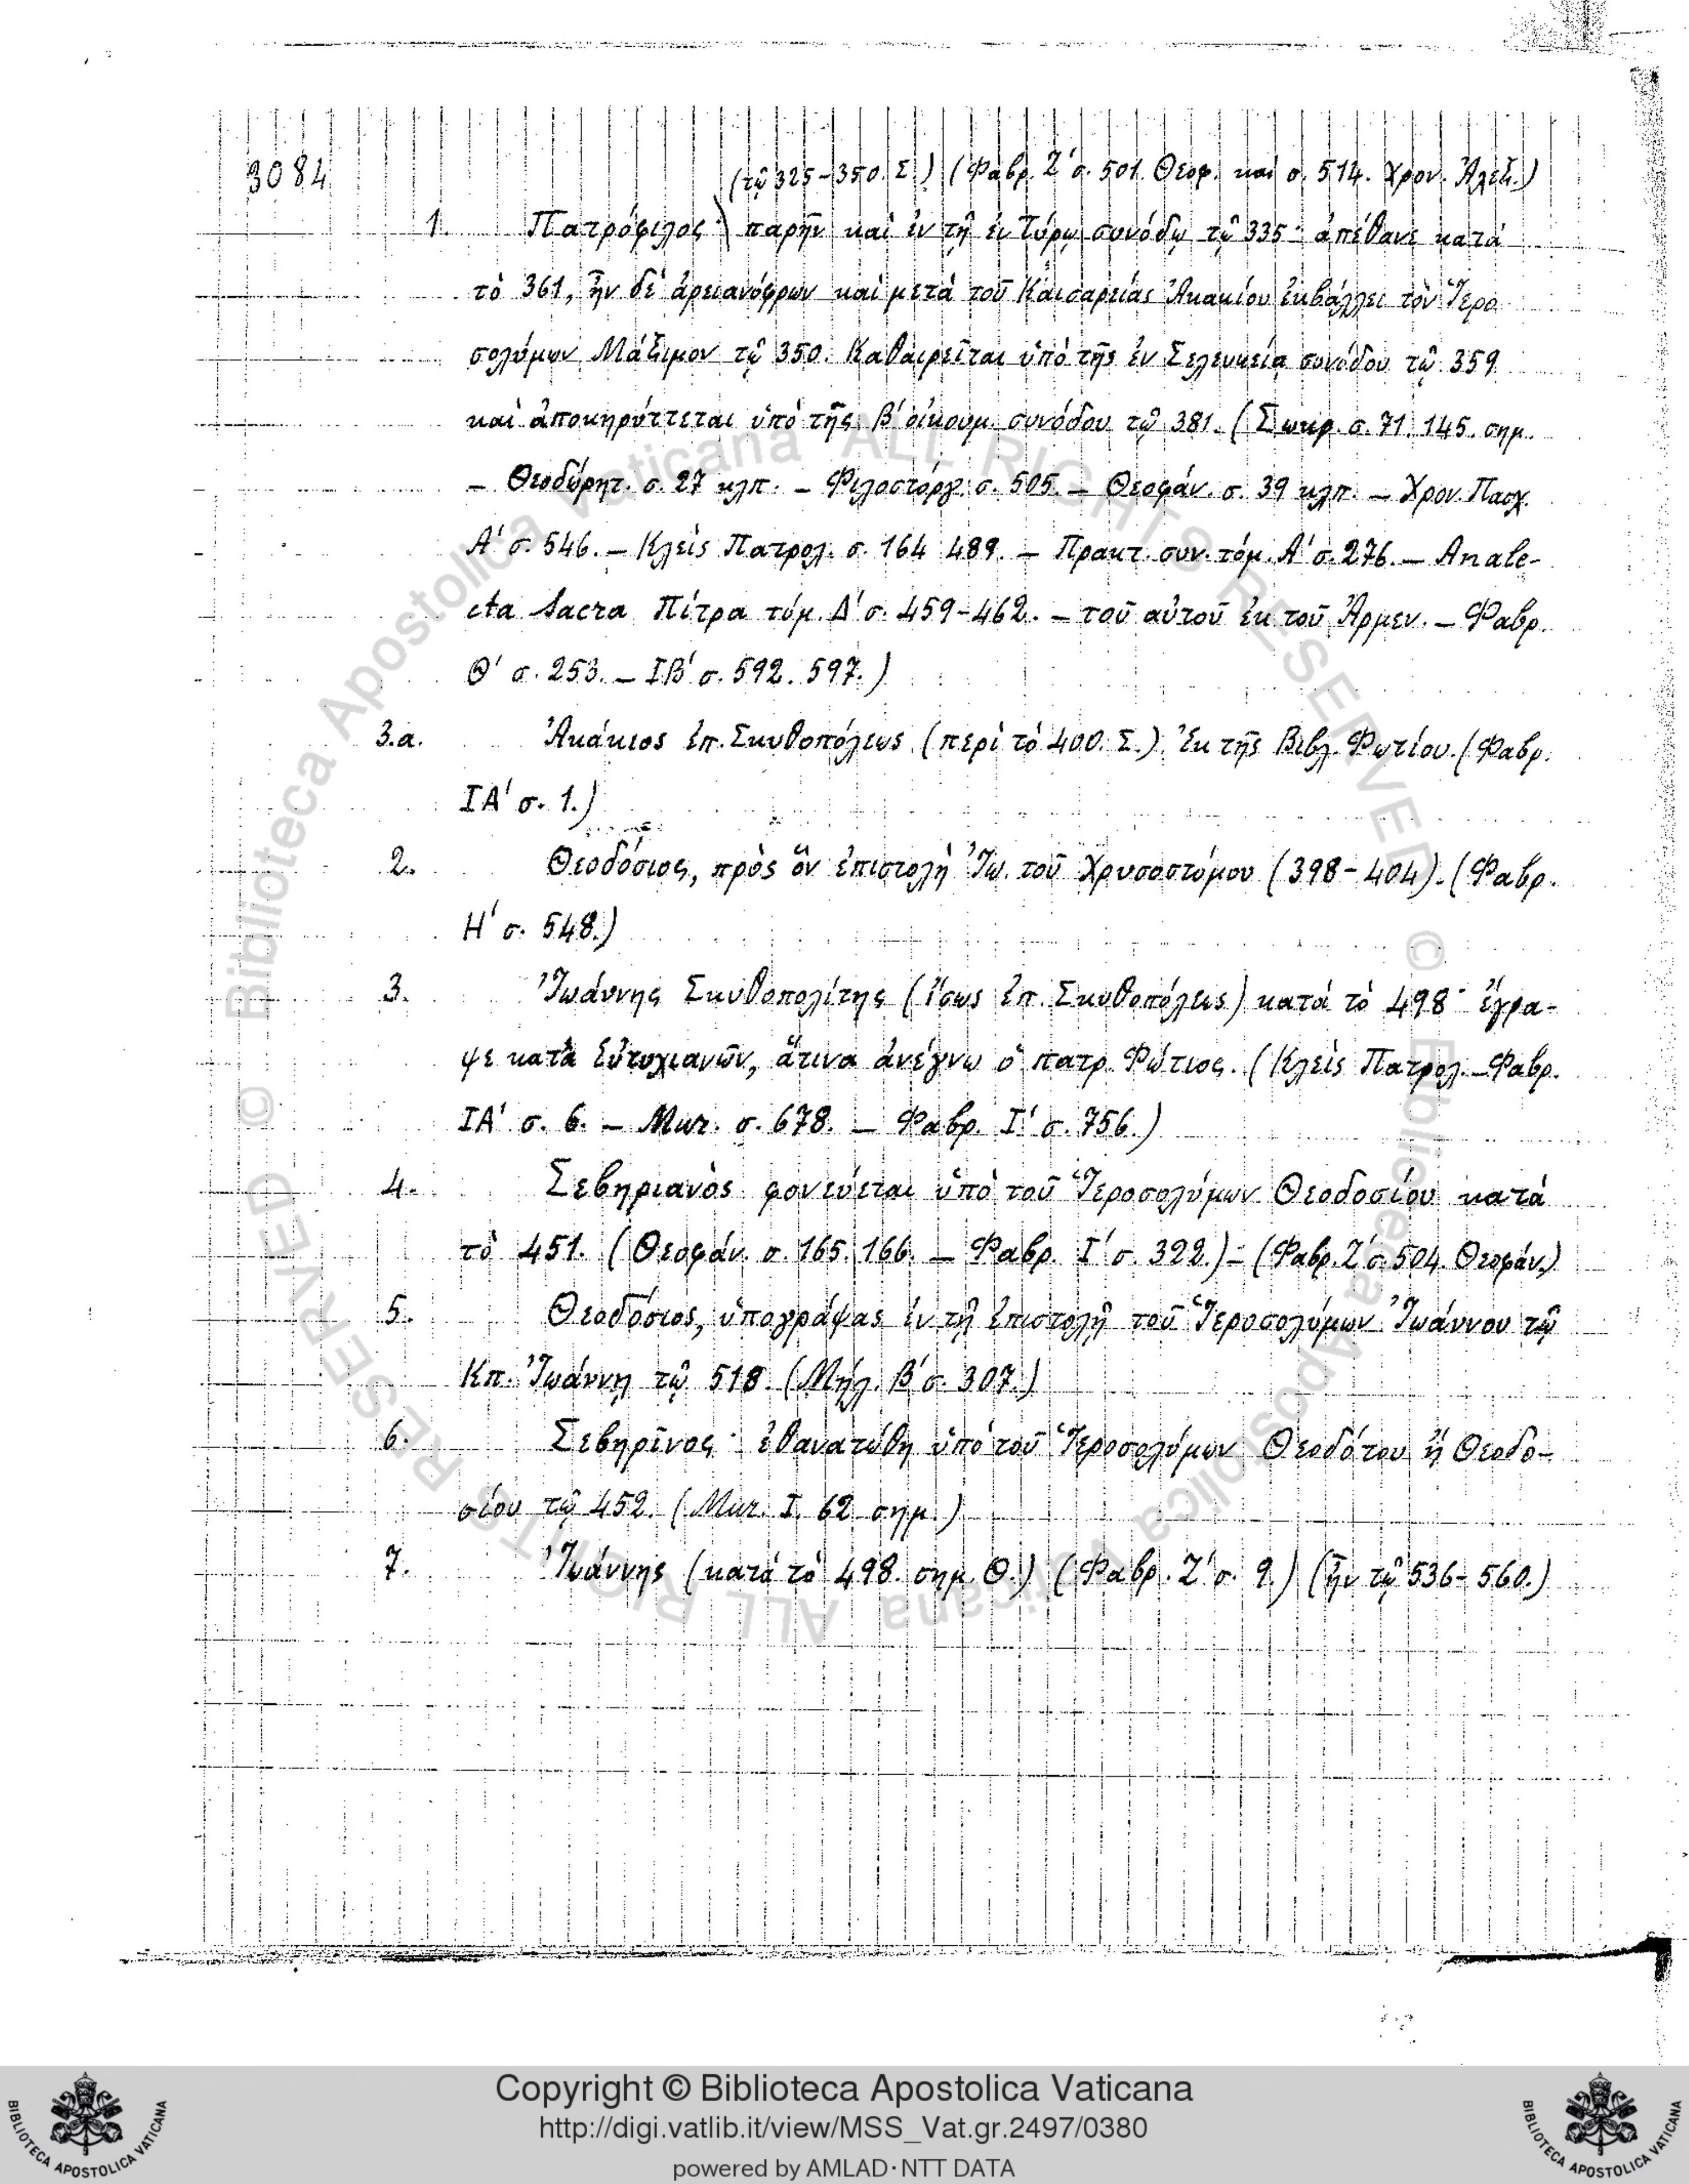 3084
(τῷ 325-350. Σ.) (Φαβρ. Ζ' σ. 501. Θεοφ. καὶ σ. 514. Χρον. Ἀλεξ.)
1. Πατρόφιλος· παρῆν καὶ ἐν τῇ ἐν Τύρῳ συνόδῳ τῷ 335· ἀπέθανε κατὰ
τὸ 361, ἦν δὲ ἀρειανόφρων καὶ μετὰ τοῦ Καισαρείας Ἀκακίου ἐκβάλλει τὸν Ἱερο
σολύμων Μάξιμον τῷ 350. Καθαιρεῖται ὑπὸ τῆς ἐν Σελευκείᾳ συνόδου τῷ 359
καὶ ἀποκηρύττεται ὑπὸ τῆς Β' οἰκουμ. συνόδου τῷ 381. (Σωκρ. σ. 71. 145. σημ.
– Θεοδώρητ. σ. 27 κλπ. – Φιλοστόργ. σ. 505. – Θεοφάν. σ. 39 κλπ. – Χρον. Πασχ.
Α' σ. 546. – Κλεὶς Πατρολ. σ. 164 489. – Πρακτ. συν. τόμ. Α' σ. 276. – Anale-
cta Sacra Πίτρα τόμ. Δ' σ. 459-462. – τοῦ αὐτοῦ ἐκ τοῦ Ἀρμεν. – Φαβρ.
Θ' σ. 253. – ΙΒ' σ. 592. 597.)
3.α. Ἀκάκιος ἐπ. Σκυθοπόλεως (περὶ τὸ 400. Σ.) Ἐκ τῆς Βιβλ. Φωτίου. (Φαβρ.
ΙΑ' σ. 1.)
2. Θεοδόσιος, πρὸς ὃν ἐπιστολὴ Ἰω. τοῦ Χρυσοστόμου (398-404). (Φαβρ.
Η' σ. 548.)
3. Ἰωάννης Σκυθοπολίτης (ἴσως ἐπ. Σκυθοπόλεως) κατὰ τὸ 498· ἔγρα-
ψε κατὰ Εὐτυχιανῶν, ἅτινα ἀνέγνω ὁ πατρ. Φώτιος. (Κλεὶς Πατρολ. – Φαβρ.
ΙΑ' σ. 6. – Mur. σ. 678. – Φαβρ. Ι' σ. 756.)
4. Σεβηριανὸς φονεύεται ὑπὸ τοῦ Ἱεροσολύμων Θεοδοσίου κατὰ
τὸ 451. (Θεοφάν. σ. 165. 166. – Φαβρ. Ι' σ. 322.) – (Φαβρ. Ζ' σ. 504. Θεοφάν.)
5. Θεοδόσιος, ὑπογράψας ἐν τῇ ἐπιστολῇ τοῦ Ἱεροσολύμων Ἰωάννου τῷ
Κπ. Ἰωάννῃ τῷ 518. (Μήλ. Β' σ. 307.)
6. Σεβηρῖνος· ἐθανατώθη ὑπὸ τοῦ Ἱεροσολύμων Θεοδότου ἢ Θεοδο-
σίου τῷ 452. (Mur. I. 62 σημ.)
7. Ἰωάννης (κατὰ τὸ 498. σημ. Θ.) (Φαβρ. Ζ' σ. 9.) (ἦν τῷ 536-560.)
Copyright © Biblioteca Apostolica Vaticana
http://digi.vatlib.it/view/MSS_Vat.gr.2497/0380
powered by AMLAD·NTT DATA
BIBLIOTECA APOSTOLICA VATICANA
BIBLIOTECA APOSTOLICA VATICANA
© Biblioteca Apostolica Vaticana ALL RIGHTS RESERVED
© Biblioteca Apostolica Vaticana ALL RIGHTS RESERVED